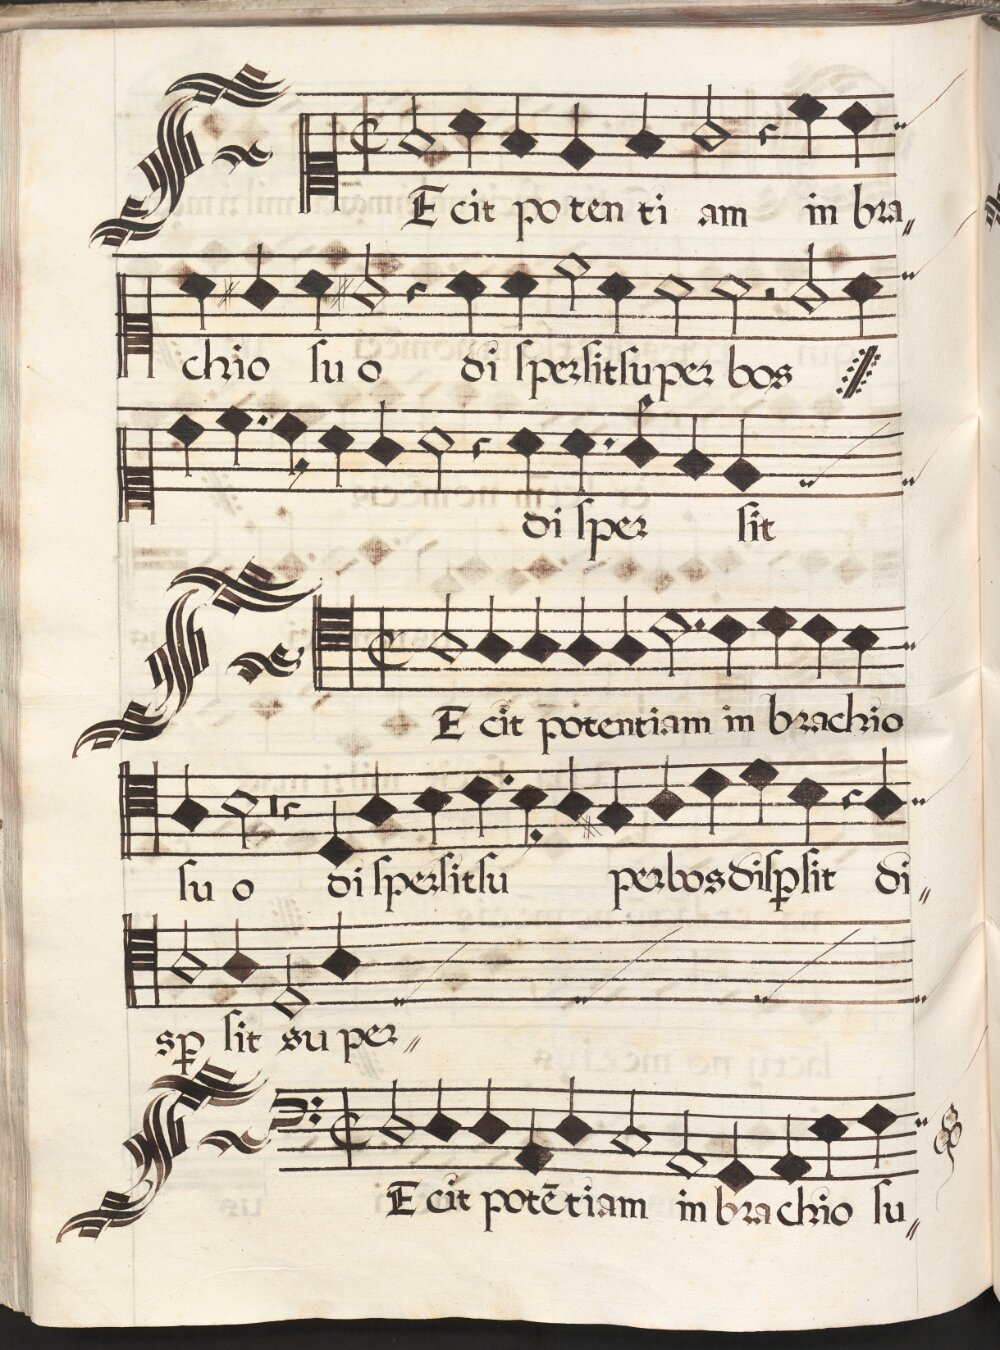 F Ecit po ten ti am in bra
chio su o di spersit super bos
di sper sit
F Ecit potentiam in brachio
su o di spersit su perbos disp̱sit di
sp̱ sit su per
F Ecit potētiam in brachio su